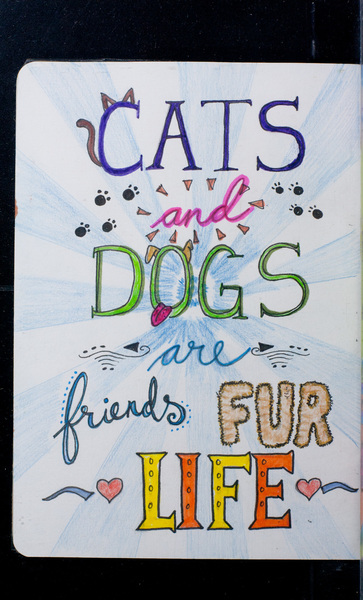 CATS
and
DOGS
are
friends FUR
LIFE